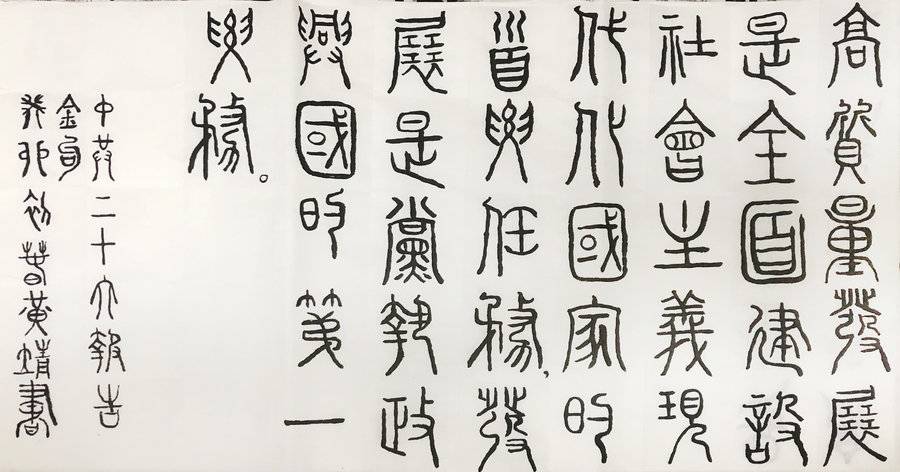 高質量發展
是全面建設
社會主義現
代化國家的
首要任務，發
展是黨執政
興國的第一
要務。
中共二十大報告
金句
癸卯初春黃靖書